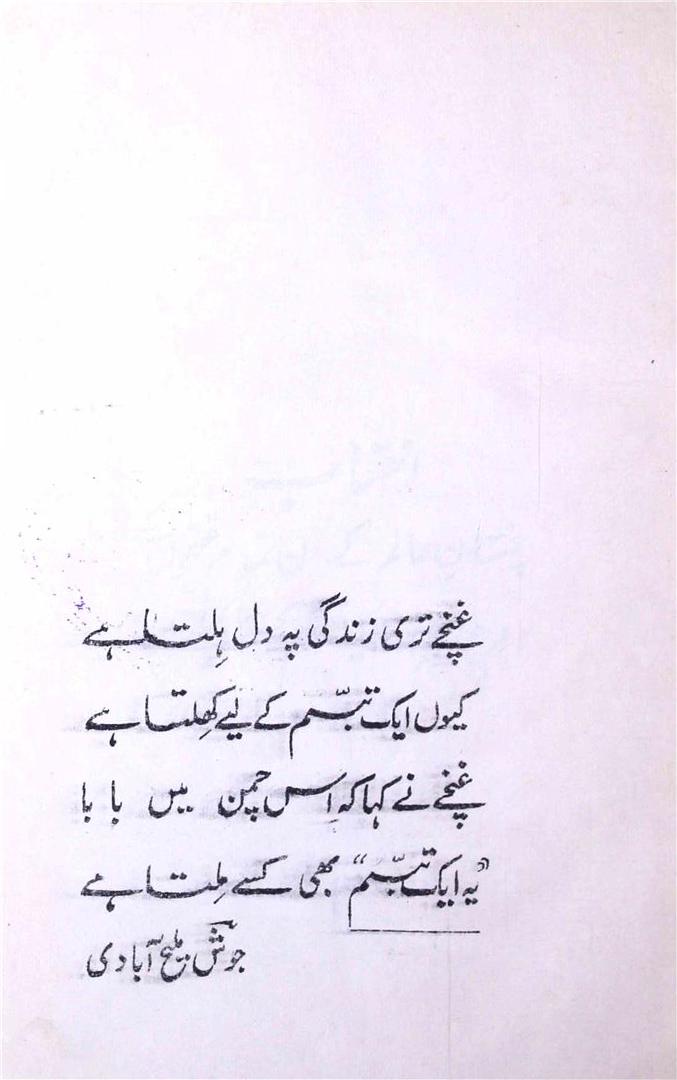 غنچے تری زندگی پہ دل ہِلتا ہے
کیوں ایک تبسّم کے لیے کھِلتا ہے
غنچے نے کہا کہ اِس چمن میں بابا
”یہ ایک تبسّم“ بھی کسے مِلتا ہے
جوشؔ ملیح آبادی